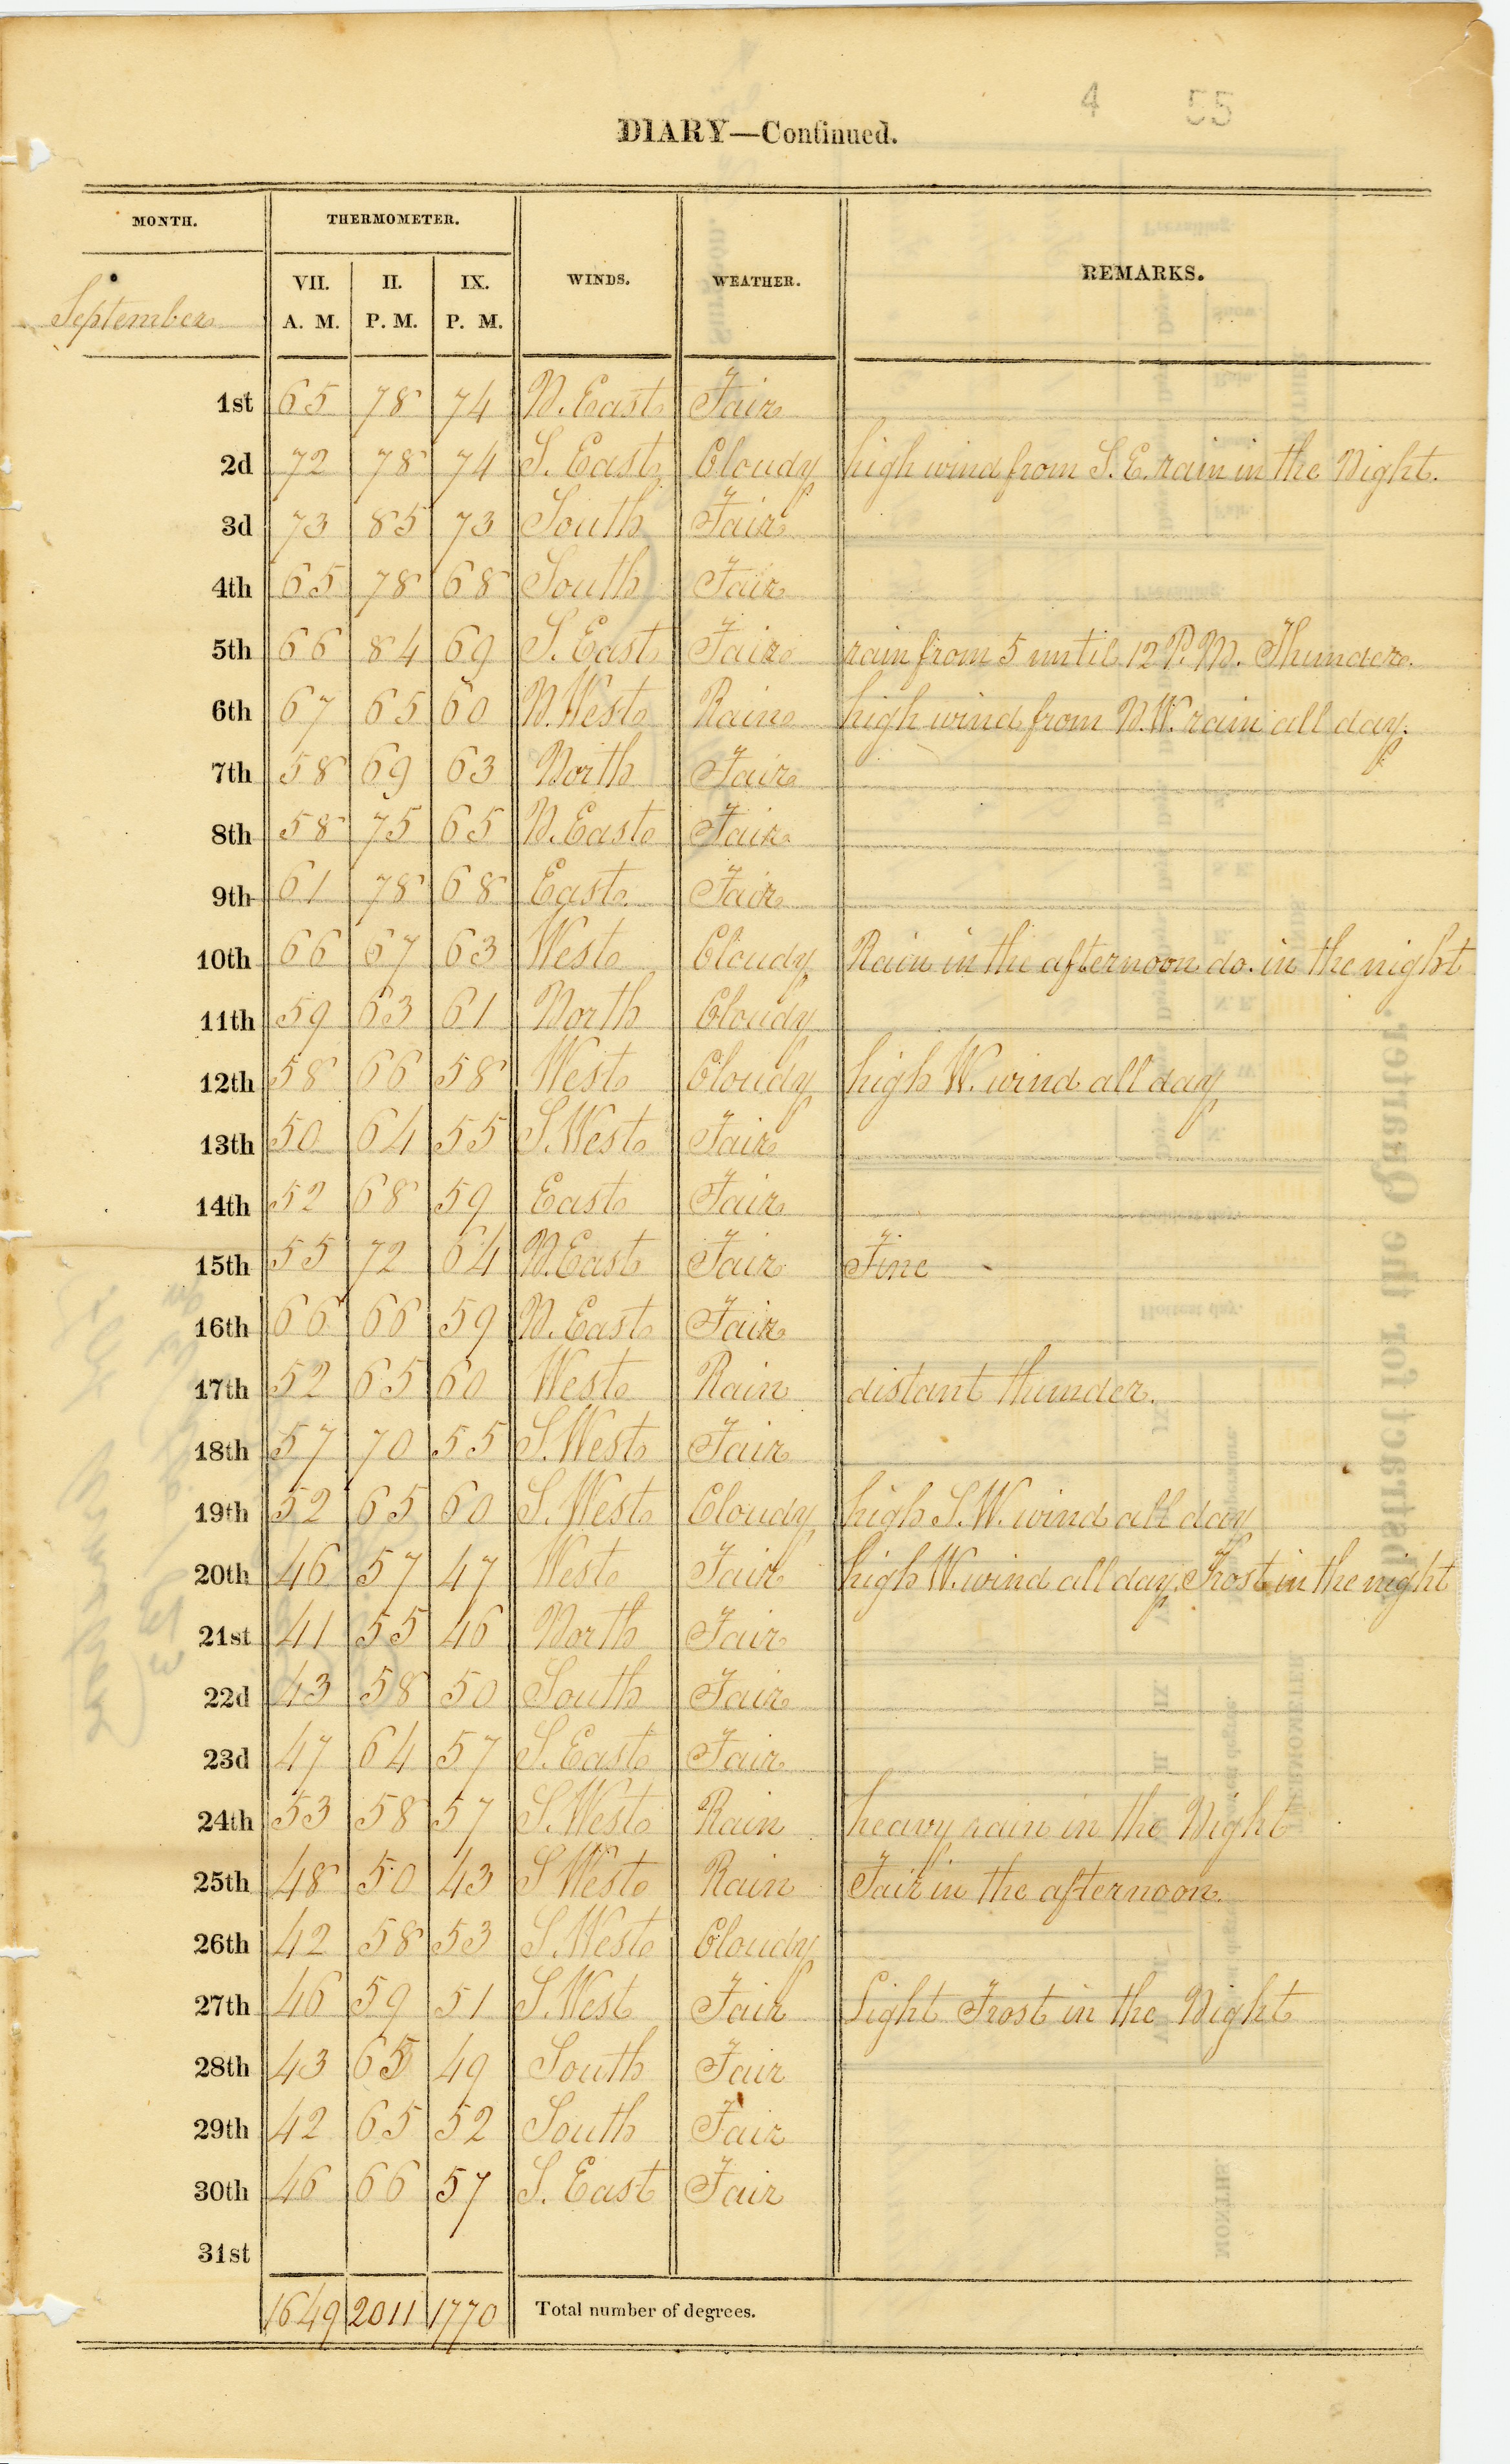 4 55
DIARY—Continued.
MONTH. THERMOMETER. WINDS. WEATHER. REMARKS.
September VII. A. M. II. P. M. IX. P. M.
1st 65 78 74 N. East Fair
2d 72 78 74 S. East Cloudy high wind from S. E. rain in the Night.
3d 73 85 73 South Fair
4th 65 78 68 South Fair
5th 66 84 69 S. East Fair rain from 5 until 12 P. M. Thunder.
6th 67 65 60 N. West Rain high wind from N. W. rain all day.
7th 58 69 63 North Fair
8th 58 75 65 N. East Fair
9th 61 78 68 East Fair
10th 66 67 63 West Cloudy Rain in the afternoon do. in the night
11th 59 63 61 North Cloudy
12th 58 66 58 West Cloudy high W. wind all day
13th 50 64 55 S. West Fair
14th 52 68 59 East Fair
15th 55 72 64 N. East Fair Fine
16th 66 66 59 N. East Fair
17th 52 65 60 West Rain distant thunder.
18th 57 70 55 S. West Fair
19th 52 65 60 S. West Cloudy high S. W. wind all day
20th 46 57 47 West Fair high W. wind all day. Frost in the night
21st 41 55 46 North Fair
22d 43 58 50 South Fair
23d 47 64 57 S. East Fair
24th 53 58 57 S. West Rain heavy rain in the Night
25th 48 50 43 S West Rain Fair in the afternoon.
26th 42 58 53 S. West Cloudy
27th 46 59 51 S. West Fair Light Frost in the Night
28th 43 65 49 South Fair
29th 42 65 52 South Fair
30th 46 66 57 S. East Fair
31st
1649 2011 1770 Total number of degrees.